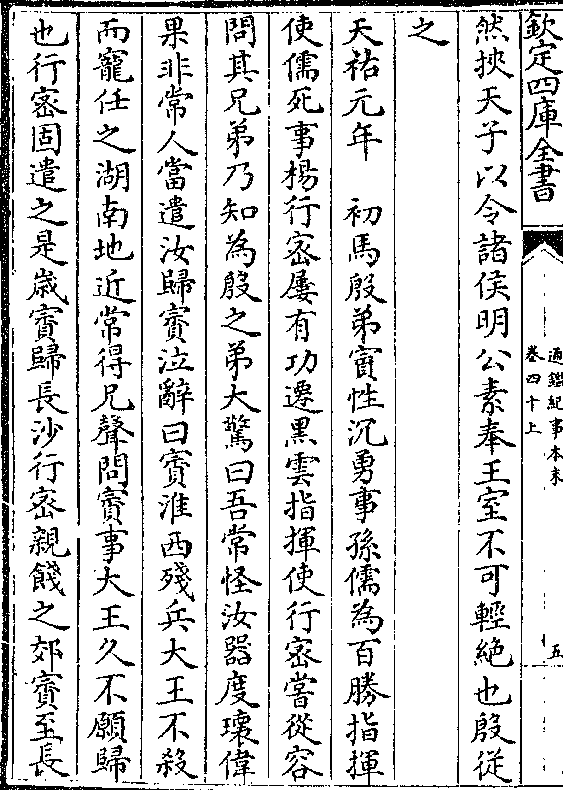 欽定四庫全書
通鑑紀事本末
卷四十上
五
然挾天子以令諸侯明公素奉王室不可輕絶也殷從
之
天祐元年　初馬殷弟賨性沉勇事孫儒為百勝指揮
使儒死事楊行宻屢有功遷黑雲指揮使行宻嘗從容
問其兄弟乃知為殷之弟大驚曰吾常怪汝器度瓌偉
果非常人當遣汝歸賨泣辭曰賨淮西殘兵大王不殺
而寵任之湖南地近常得兄聲問賨事大王久不願歸
也行宻固遣之是歲賨歸長沙行宻親餞之郊賨至長